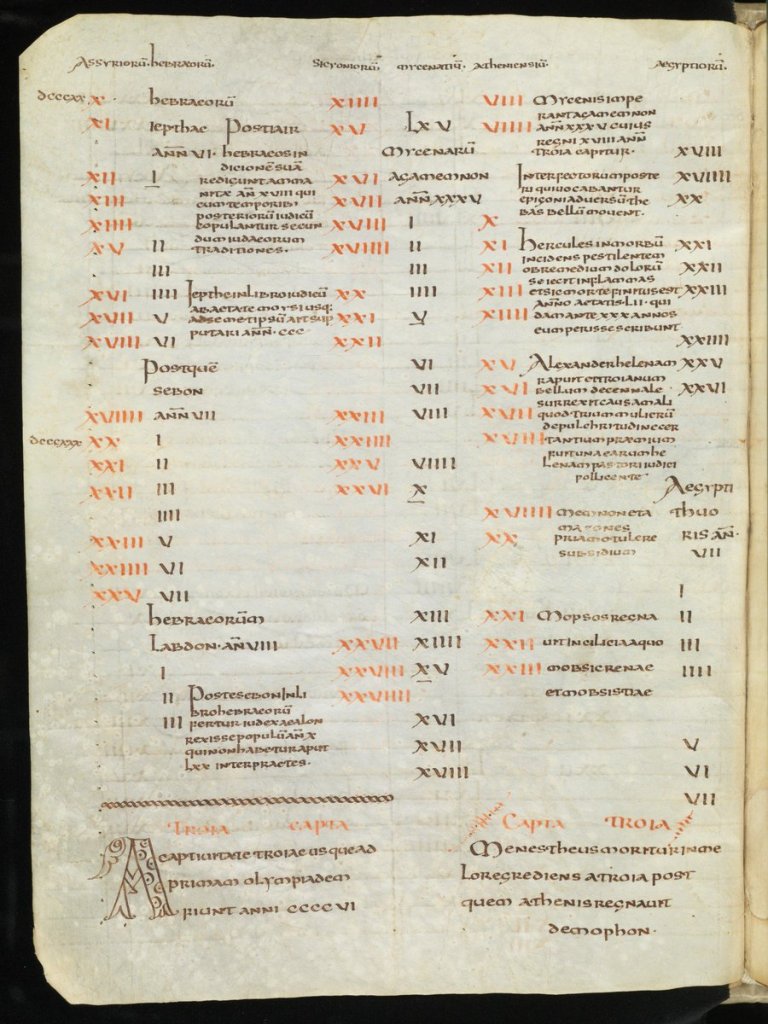 Assyriorū. hebraeorū. Sicyoniorū. mycenatiū. Atheniensiū. Aegyptiorū.
dccccxx X. hebraeorū XIIII VIII Mycenis impe
XI Iepthae Postiair XV LXV VIIII rant agamemnon
annn XXXV cuius
regni XVIII annn
ANN VI. hebraeos in Mycenarū Troia capitur. XVIII
dicionē suā
XII I redigunt amma XVI agamemnon Interfectorum poste XVIIII
XIII nitae an XVIII qui XVII ANN XXXV ri qui vocabantur XX
cum temporib epigoni adversū the
XIIII posteriorū iudicū XVIII I X bas bellū movent.
populantur secun
XV II dum iudaeorum XVIIII II XI Hercules in morbū XXI
traditiones. incidens pestilentem
III III XII ob remedium dolorū XXII
se iecit in flammas
XVI IIII Iepthe in libro iudicū XX IIII XIII et sic morte finitus est XXIII
XVII V ab aetate moysi usq: XXI V XIIII anno aetatis LII. qui
ad semetipsū ait sup dam ante XXX annos
XVIII VI putari ann. CCC XXII eum perisse scribunt
XXIIII
Postquē VI XV Alexander helenam XXV
rapuit et troianum
sebon VII XVI bellum decennale XXVI
surrexit causa mali
XVIIII ANN VII XXIII VIII XVII quod trium mulierū
de pulchritudine cer
dccccxxx XX I XXIIII XVIII tantium praemium
fuit una earum he
XXI II XXV VIIII lenam pastori iudici
pollicente.
XXII III XXVI X Aegypti
IIII XVIIII Memnon et a thuo
mazones
XXIII V XI XX priamo tulere RIS AN.
XXIIII VI XII subsidium VII
XXV VII I
hebraeorum XIII XXI Mopsos regna II
Labdon. ANVIII XXVII XIIII XXII uit in cilicia a quo III
I XXVIII XV XXIII mobsicrenae IIII
II Post esebon in li XXVIIII et mobsistiae
bro hebraeorū
III fertur iudex aealon XVI
rexisse populū an X
qui non habetur aput XVII V
LXX interpraetes. XVIII VI
VII
TROIA CAPTA CAPTA TROIA
A captivitate troiae usque ad Menestheus moritur in me
primam olympiadem Lo regrediens a troia post
fiunt anni CCCCVI quem athenis regnavit
demophon.